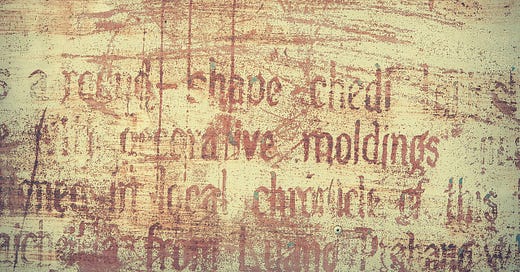 a round-shape chedi
with decorative moldings
in local chronicle of this
from Luang Prabang